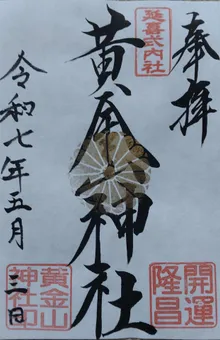 奉拝
延喜式内社
黄金神社
開運
隆昌
令和七年五月三日
黄金山
神社印